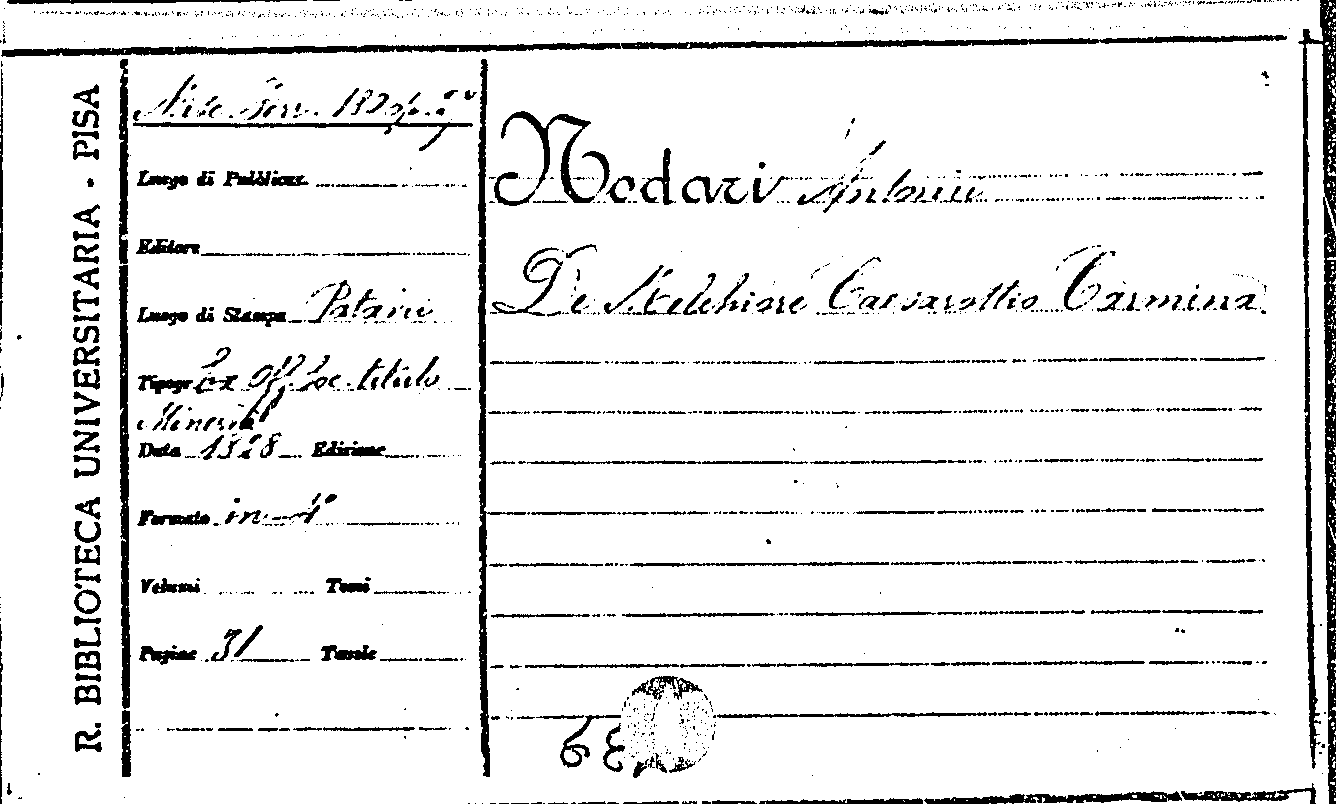 R. BIBLIOTECA UNIVERSITARIA - PISA
Misc.
Luogo di Pubblicaz.
Editore
Luogo di Stampa Patavii
Tipogr. Ex Off. Soc. titulo
Minerva
Data 1828 Edizione
Formato in-4°
Volumi Tomi
Pagine 31 Tavole
Nodari Antonii
De Melchiore Caesarottio Carmina